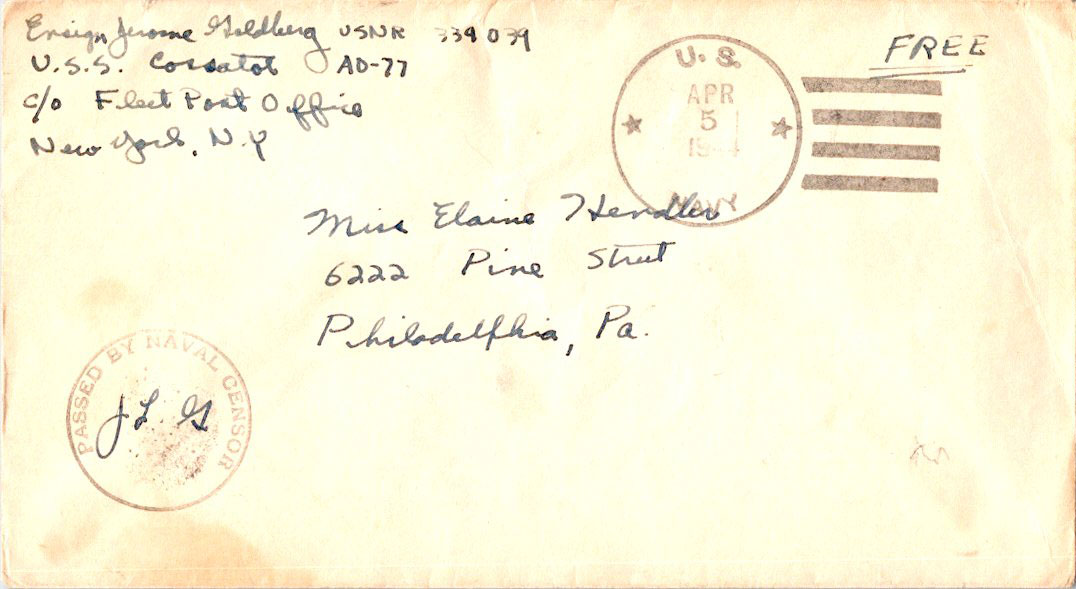 Ensign Jerome Goldberg USNR 339039
U.S.S. Cossatot AO-77
c/o Fleet Post Office
New York, N.Y
FREE
U. S.
APR
5
1944
NAVY
Miss Elaine Hendler
6222 Pine Street
Philadelphia, Pa.
PASSED BY NAVAL CENSOR
JLG